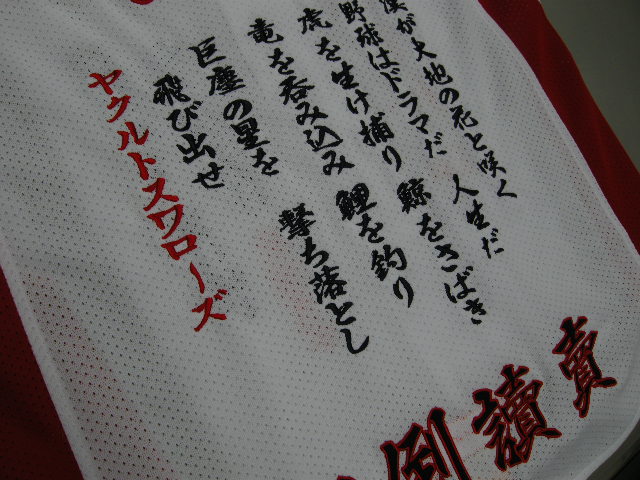 漢が大地の花と咲く
野球はドラマだ 人生だ
虎を生け捕り 鯨をさばき
竜を呑み込み 鯉を釣り
巨塵の星を 撃ち落とし
飛び出せ
ヤクルトスワローズ
倒讀賣